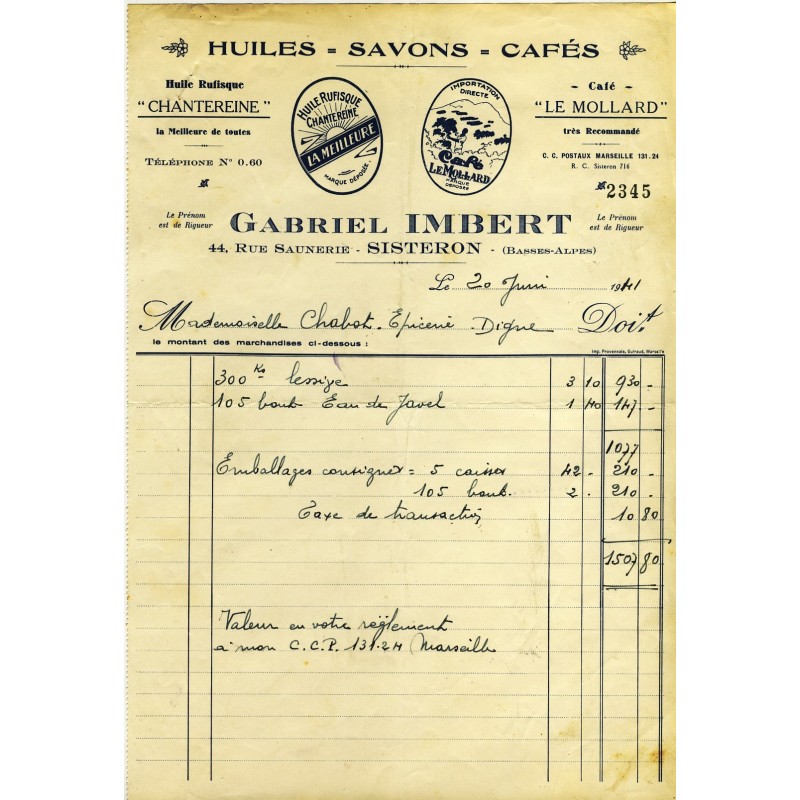 HUILES = SAVONS = CAFÉS
Huile Rufisque
"CHANTEREINE"
la Meilleure de toutes
TÉLÉPHONE N° 0.60
HUILE RUFISQUE
CHANTEREINE
LA MEILLEURE
MARQUE DÉPOSÉE
IMPORTATION
DIRECTE
Café
LE MOLLARD
MARQUE
DÉPOSÉE
- Café -
"LE MOLLARD"
très Recommandé
C. C. POSTAUX MARSEILLE 131.24
R. C. Sisteron 716
2345
Le Prénom
est de Rigueur
GABRIEL IMBERT
Le Prénom
est de Rigueur
44, RUE SAUNERIE - SISTERON - (BASSES-ALPES)
Le 20 Juin 1941
Mademoiselle Chabot Epicerie Digne Doit
le montant des marchandises ci-dessous :
Imp. Provençale, Guiraud, Marseille
300 Ks lessive 3 10 930 -
105 bout Eau de Javel 1 40 147 -
1077
Emballages consignes = 5 caisses 42 - 210 -
105 bout. 2 - 210 -
Taxe de transaction 10 80
1507 80
Valeur en votre règlement
à mon C.C.P. 131.24 Marseille